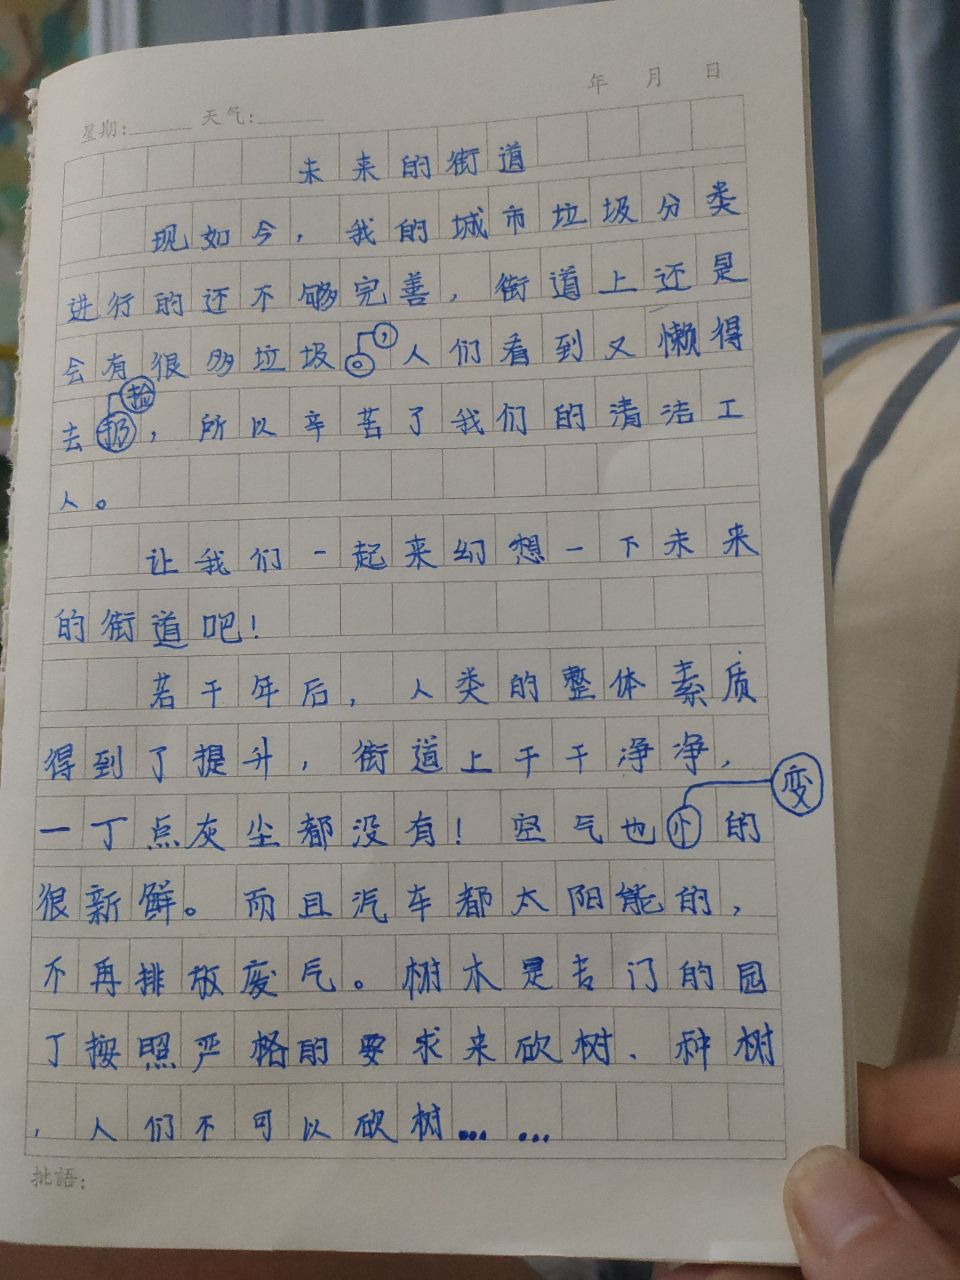 年 月 日
星期: 天气:
未来的街道
现如今，我的城市垃圾分类
进行的还不够完善，街道上还是
会有很多垃圾。，人们看到又懒得
捡
去扔，所以辛苦了我们的清洁工
人。
让我们一起来幻想一下未来
的街道吧！
若干年后，人类的整体素质
得到了提升，街道上干干净净，
变
一丁点灰尘都没有！空气也小的
很新鲜。而且汽车都太阳能的，
不再排放废气。树木是专门的园
丁按照严格的要求来砍树、种树
，人们不可以砍树……
批語: